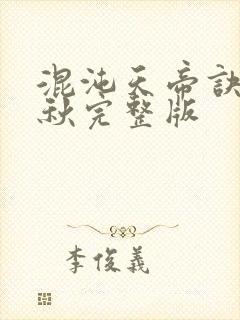 混沌天帝诀
秋完整版
李俊義